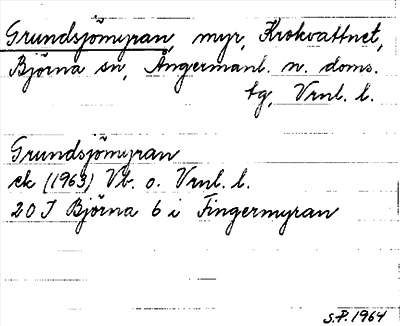 Grundsjömyran, myr, Krokvattnet,
Björna sn, Ångermanl. n. doms.
tg, Vrnl. l.
Grundsjömyran
ek (1963) Vb. o. Vrnl. l.
20 J Björna 6 i Fingermyran
S.P. 1964